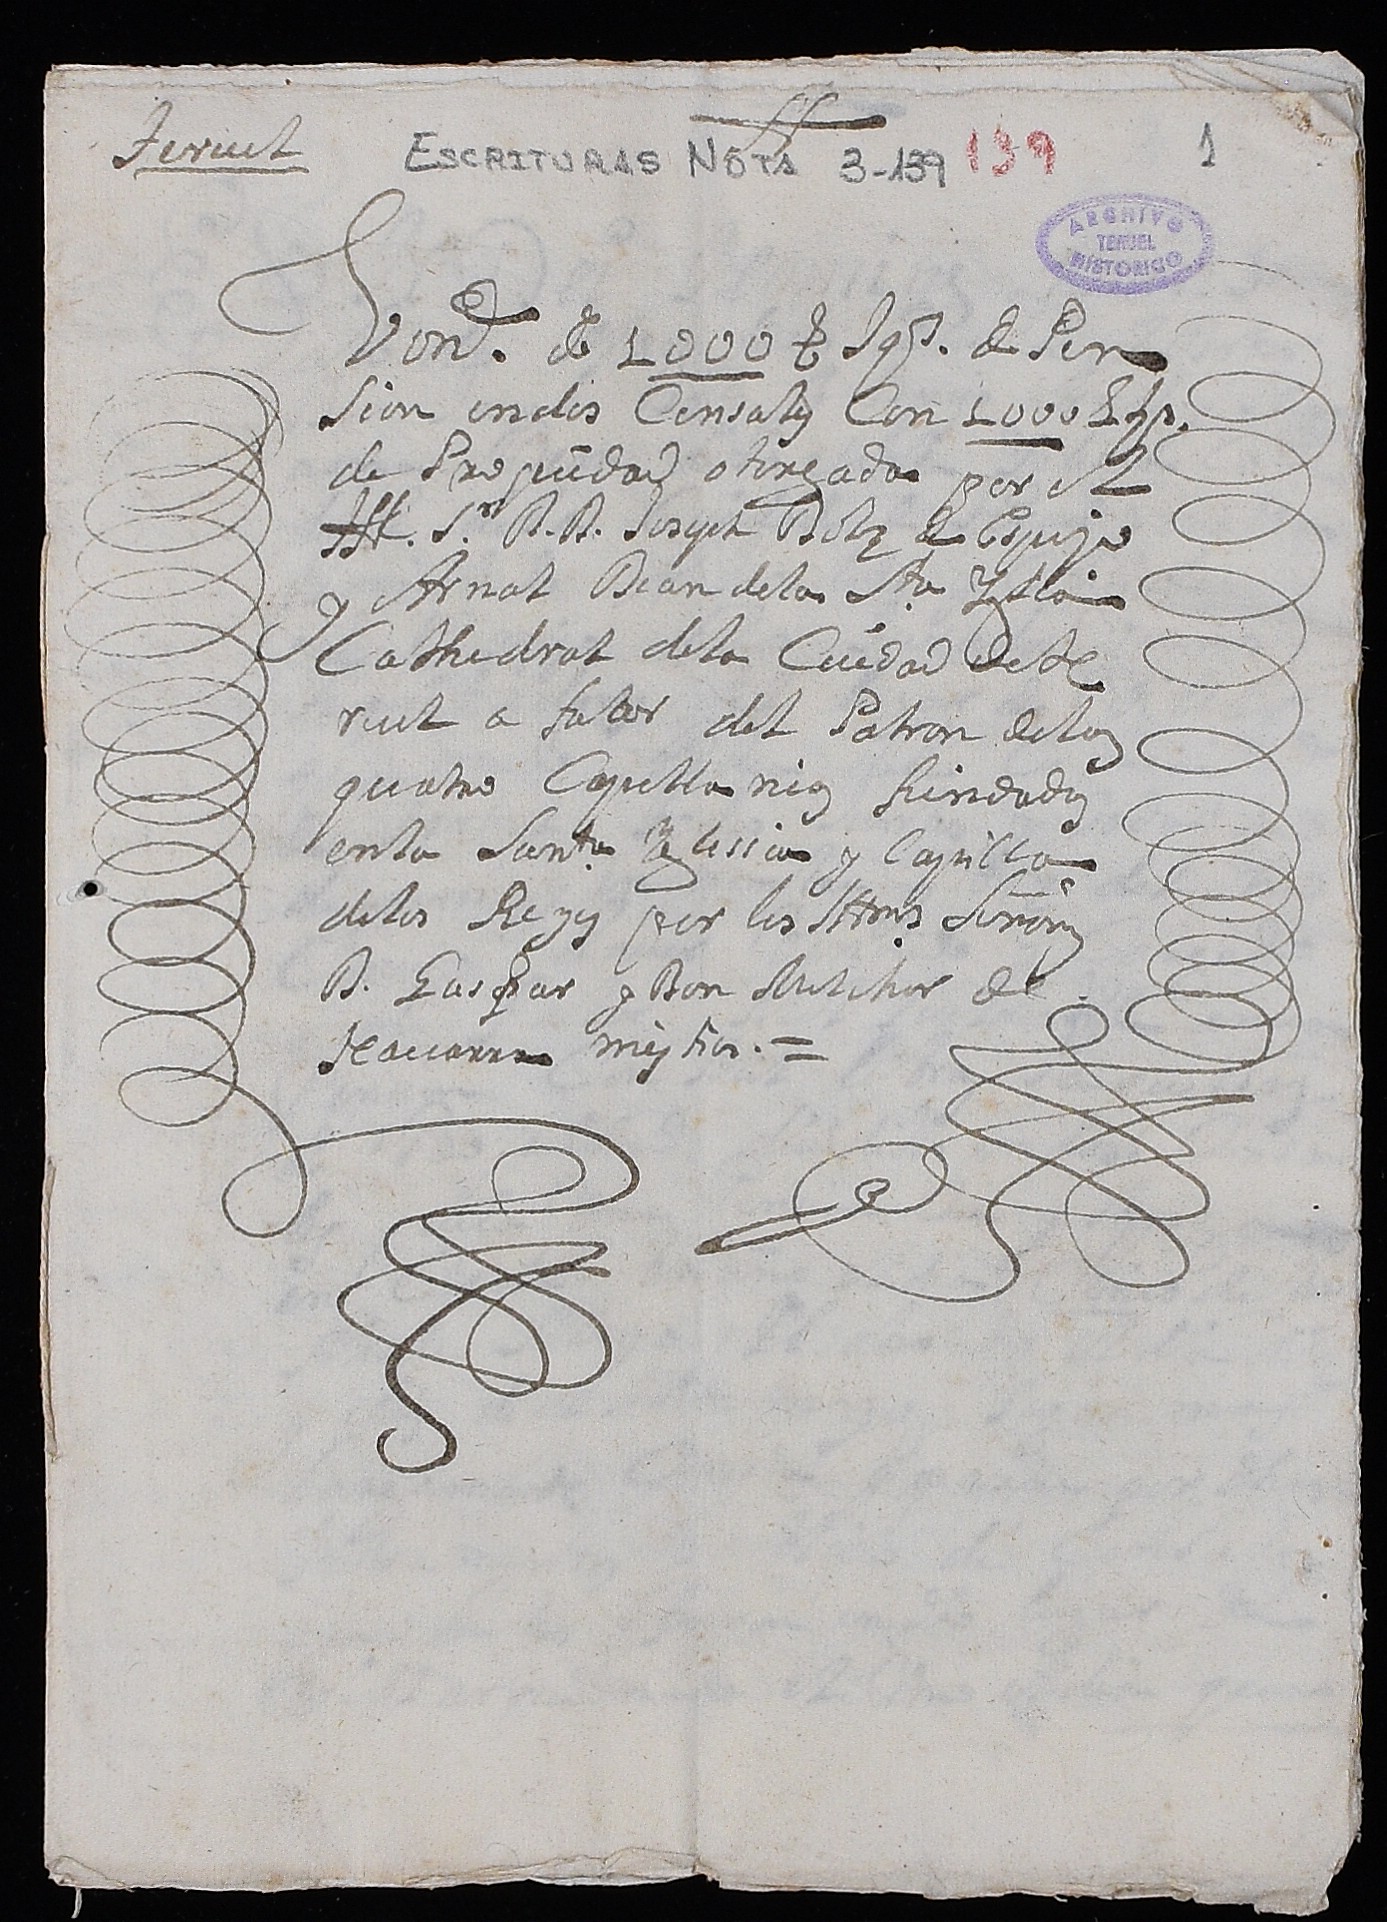 Teruel
ESCRITURAS NOTS 3-159 139 1
ARCHIVO
TERUEL
HISTORICO
Von.d de 1000 ₶ Jqs. de Pen
sion en dos Censales Con 1000 ₶ Jqs.
de Propiedad otorgada por el
Ill. S.r D. D. Joseph Diez de Espejo
y Arnal Dean de la Sta Yglia
Cathedral de la Ciudad de Te
ruel a fabor del Patron de las
quatro Capellanias fundadas
en la Santa Yglesia y Capilla
de los Reyes por los Illmos Señores
D. Gaspar y Don Melchor de
Nauarra mis tios. =